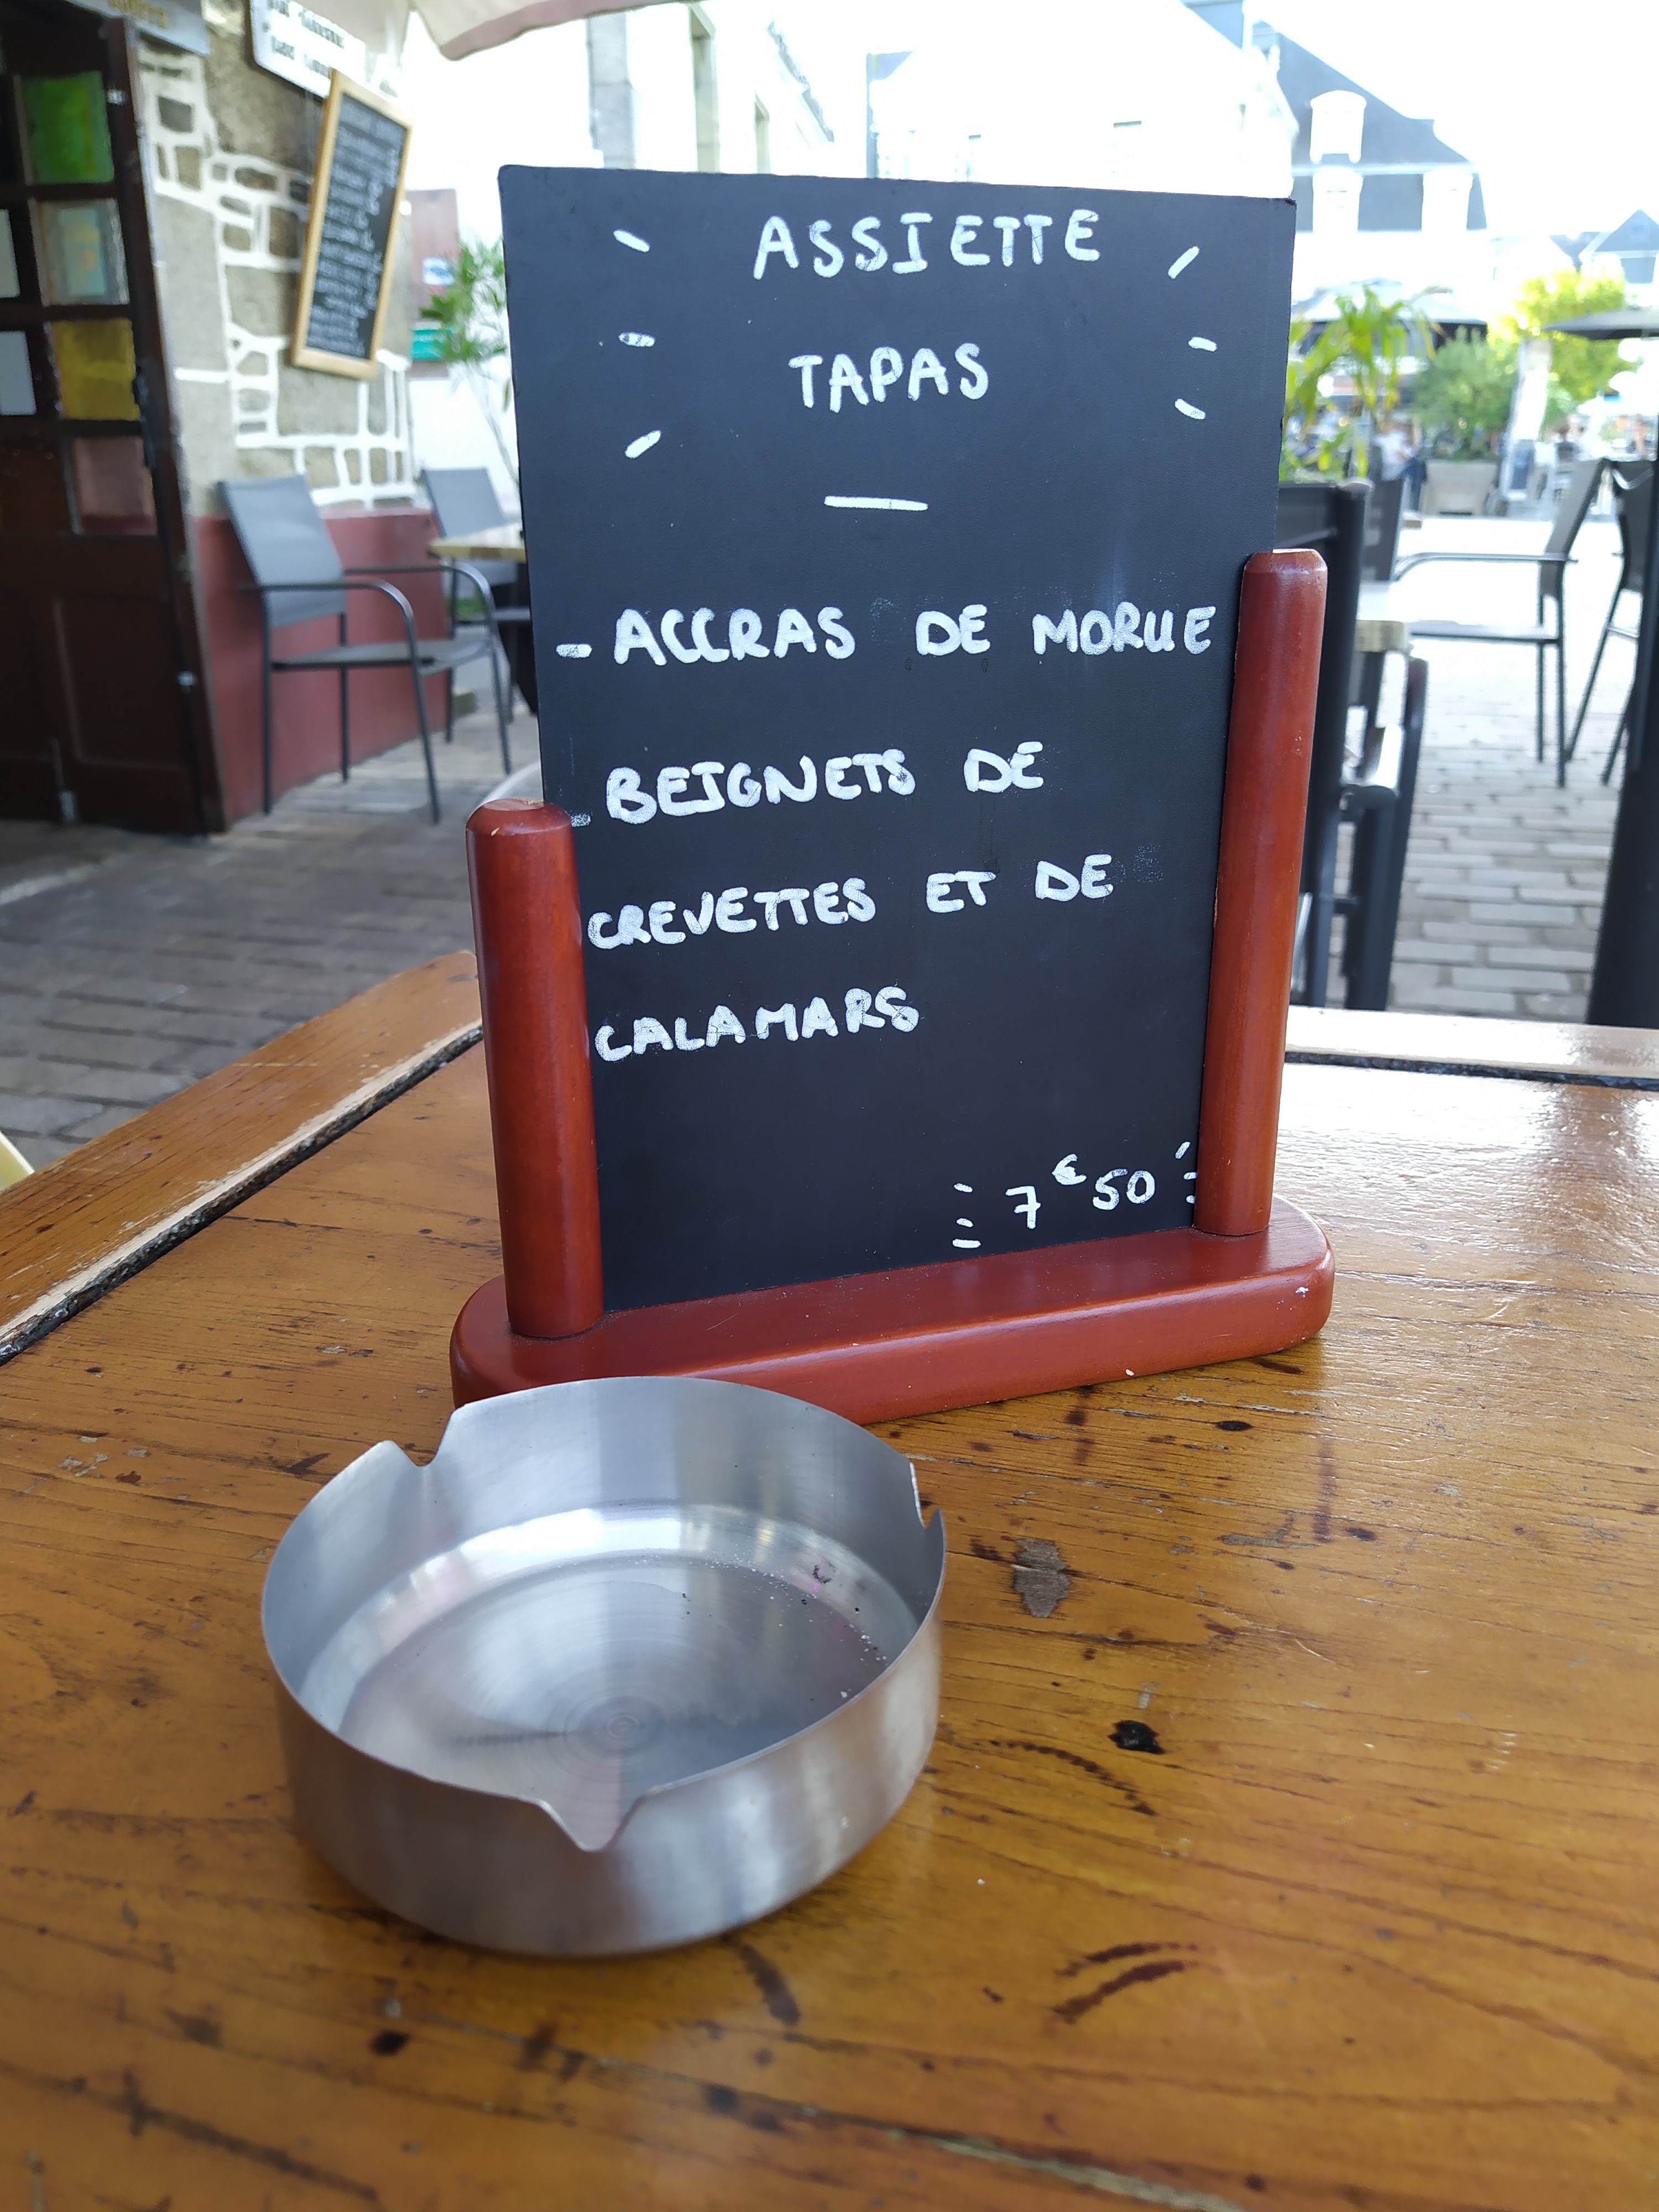 ASSIETTE
TAPAS
- ACCRAS DE MORUE
- BEIGNETS DE
CREVETTES ET DE
CALAMARS
7€50